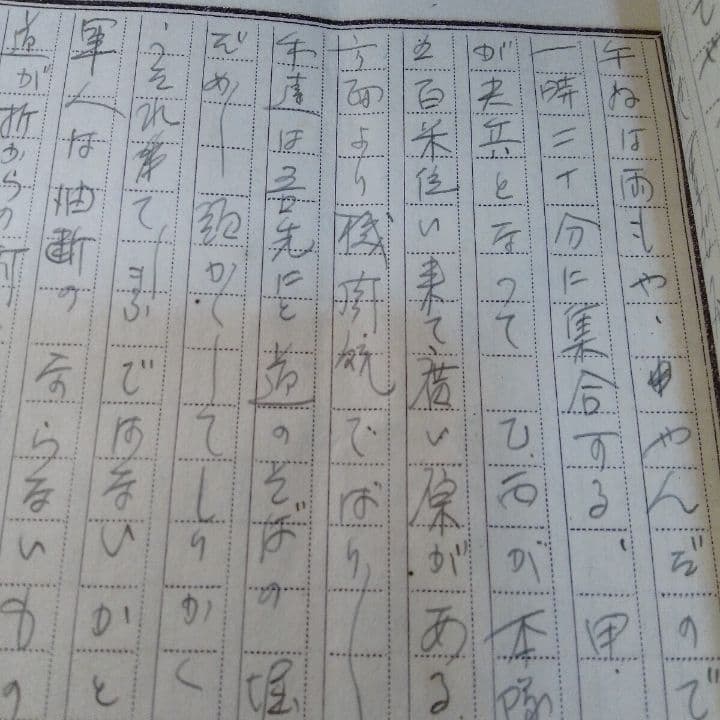 午ねは雨もや、やんだので
一時二十分に集合する、甲
が尖兵となって乙丙が本隊
五百米位い来て、広い原がある
方面より機関銃でばりー
午達は吾先にと道のそばの堀
ぞめー頭かくーてしりかく
それ弟て引ふではないかと
軍人は油断のならないもの
道が折からの